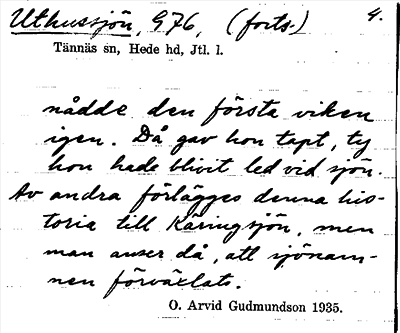 Uthussjön, 976, (forts.) 4.
Tännäs sn, Hede hd, Jtl. l.
nådde den första viken
igen. Då gav hon tapt, ty
hon hade blivit led vid sjön.
Av andra förlägges denna his-
toria till Käringsjön, men
man anser då, att sjönam-
nen förväxlats.
O. Arvid Gudmundson 1935.